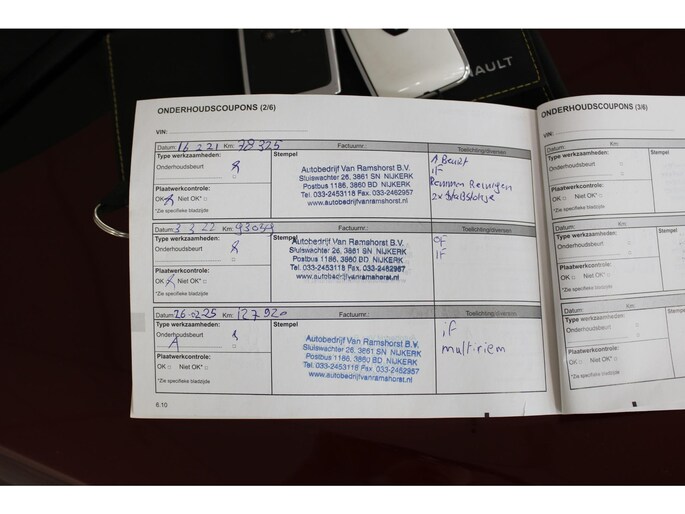 AULT
ONDERHOUDSCOUPONS (2/6)
VIN:
Datum: 16 2 21 Km: 78325 Factuurnr.: Toelichting/diversen
Type werkzaamheden:
Onderhoudsbeurt
Plaatwerkcontrole:
OK Niet OK*
*Zie specifieke bladzijde
Stempel
Autobedrijf Van Ramshorst B.V.
Sluiswachter 26, 3861 SN NIJKERK
Postbus 1186, 3860 BD NIJKERK
Tel. 033-2453118 Fax. 033-2462957
www.autobedrijfvanramshorst.nl
1 Beurt
IF
Remmen Reinigen
2x
Datum: 3 2 22 Km: 93049 Factuurnr.: Toelichting/diversen
Type werkzaamheden:
Onderhoudsbeurt
Plaatwerkcontrole:
OK Niet OK*
*Zie specifieke bladzijde
Stempel
Autobedrijf Van Ramshorst B.V.
Sluiswachter 26, 3861 SN NIJKERK
Postbus 1186, 3860 BD NIJKERK
Tel. 033-2453118 Fax. 033-2462957
www.autobedrijfvanramshorst.nl
OF
IF
Datum: 26-02-25 Km: 127920 Factuurnr.: Toelichting/diversen
Type werkzaamheden:
Onderhoudsbeurt
A
Plaatwerkcontrole:
OK Niet OK*
*Zie specifieke bladzijde
Stempel
Autobedrijf Van Ramshorst B.V.
Sluiswachter 26, 3861 SN NIJKERK
Postbus 1186, 3860 BD NIJKERK
Tel. 033-2453118 Fax. 033-2462957
www.autobedrijfvanramshorst.nl
if
multiriem
6.10
ONDERHOUDSCOUPONS (3/6)
VIN:
Datum: Km:
Type werkzaamheden:
Onderhoudsbeurt
Plaatwerkcontrole:
OK Niet OK*
*Zie specifieke bladzijde
Stempel
Datum: Km:
Type werkzaamheden:
Onderhoudsbeurt
Plaatwerkcontrole:
OK Niet OK*
*Zie specifieke bladzijde
Stempel
Datum: Km:
Type werkzaamheden:
Onderhoudsbeurt
Plaatwerkcontrole:
OK Niet OK*
*Zie specifieke bladzijde
Stempel